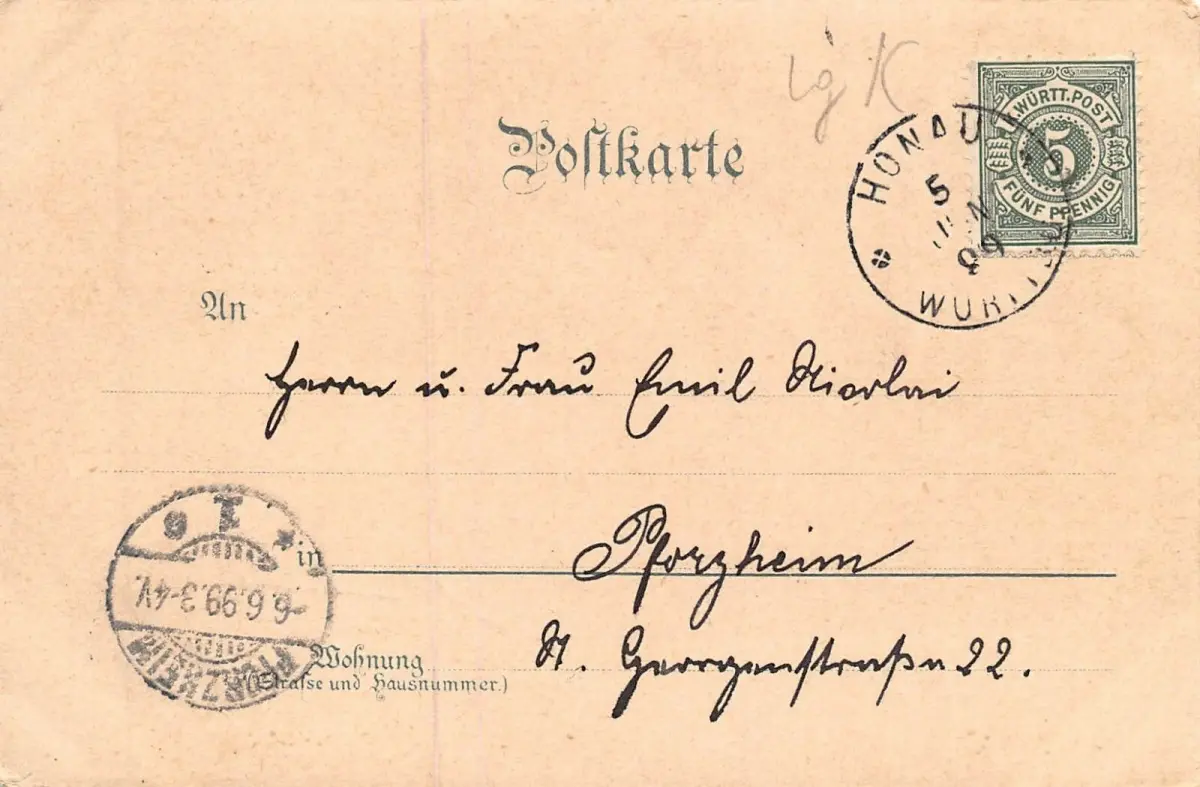 lg K
Postkarte
K. WÜRTT. POST
5
FÜNF PFENNIG
HONAU
5
JUN
99
WÜRTTBG
An
Herrn u. Frau Emil Nicolai
in Pforzheim
1
-6.6.99.3-4V.
PFORZHEIM
Wohnung
(Strasse und Hausnummer.)
St. Georgenstraße 22.